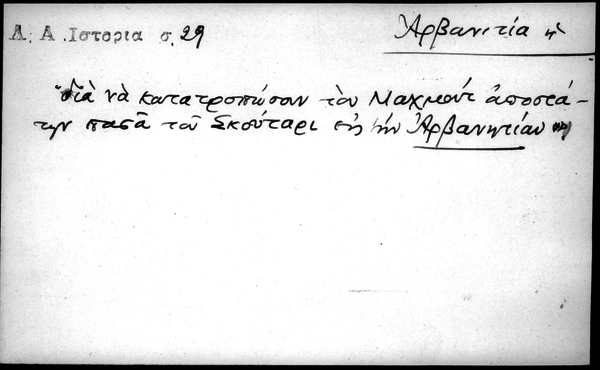 Δ. Α. Ιστορία σ. 29
Ἀρβανιτία ἡ
"διὰ νὰ κατατροπώσουν τὸν Μαχμοὺτ ἀποστά-
την πασᾶ τοῦ Σκούταρι εἰς τὴν Ἀρβανητίαν"